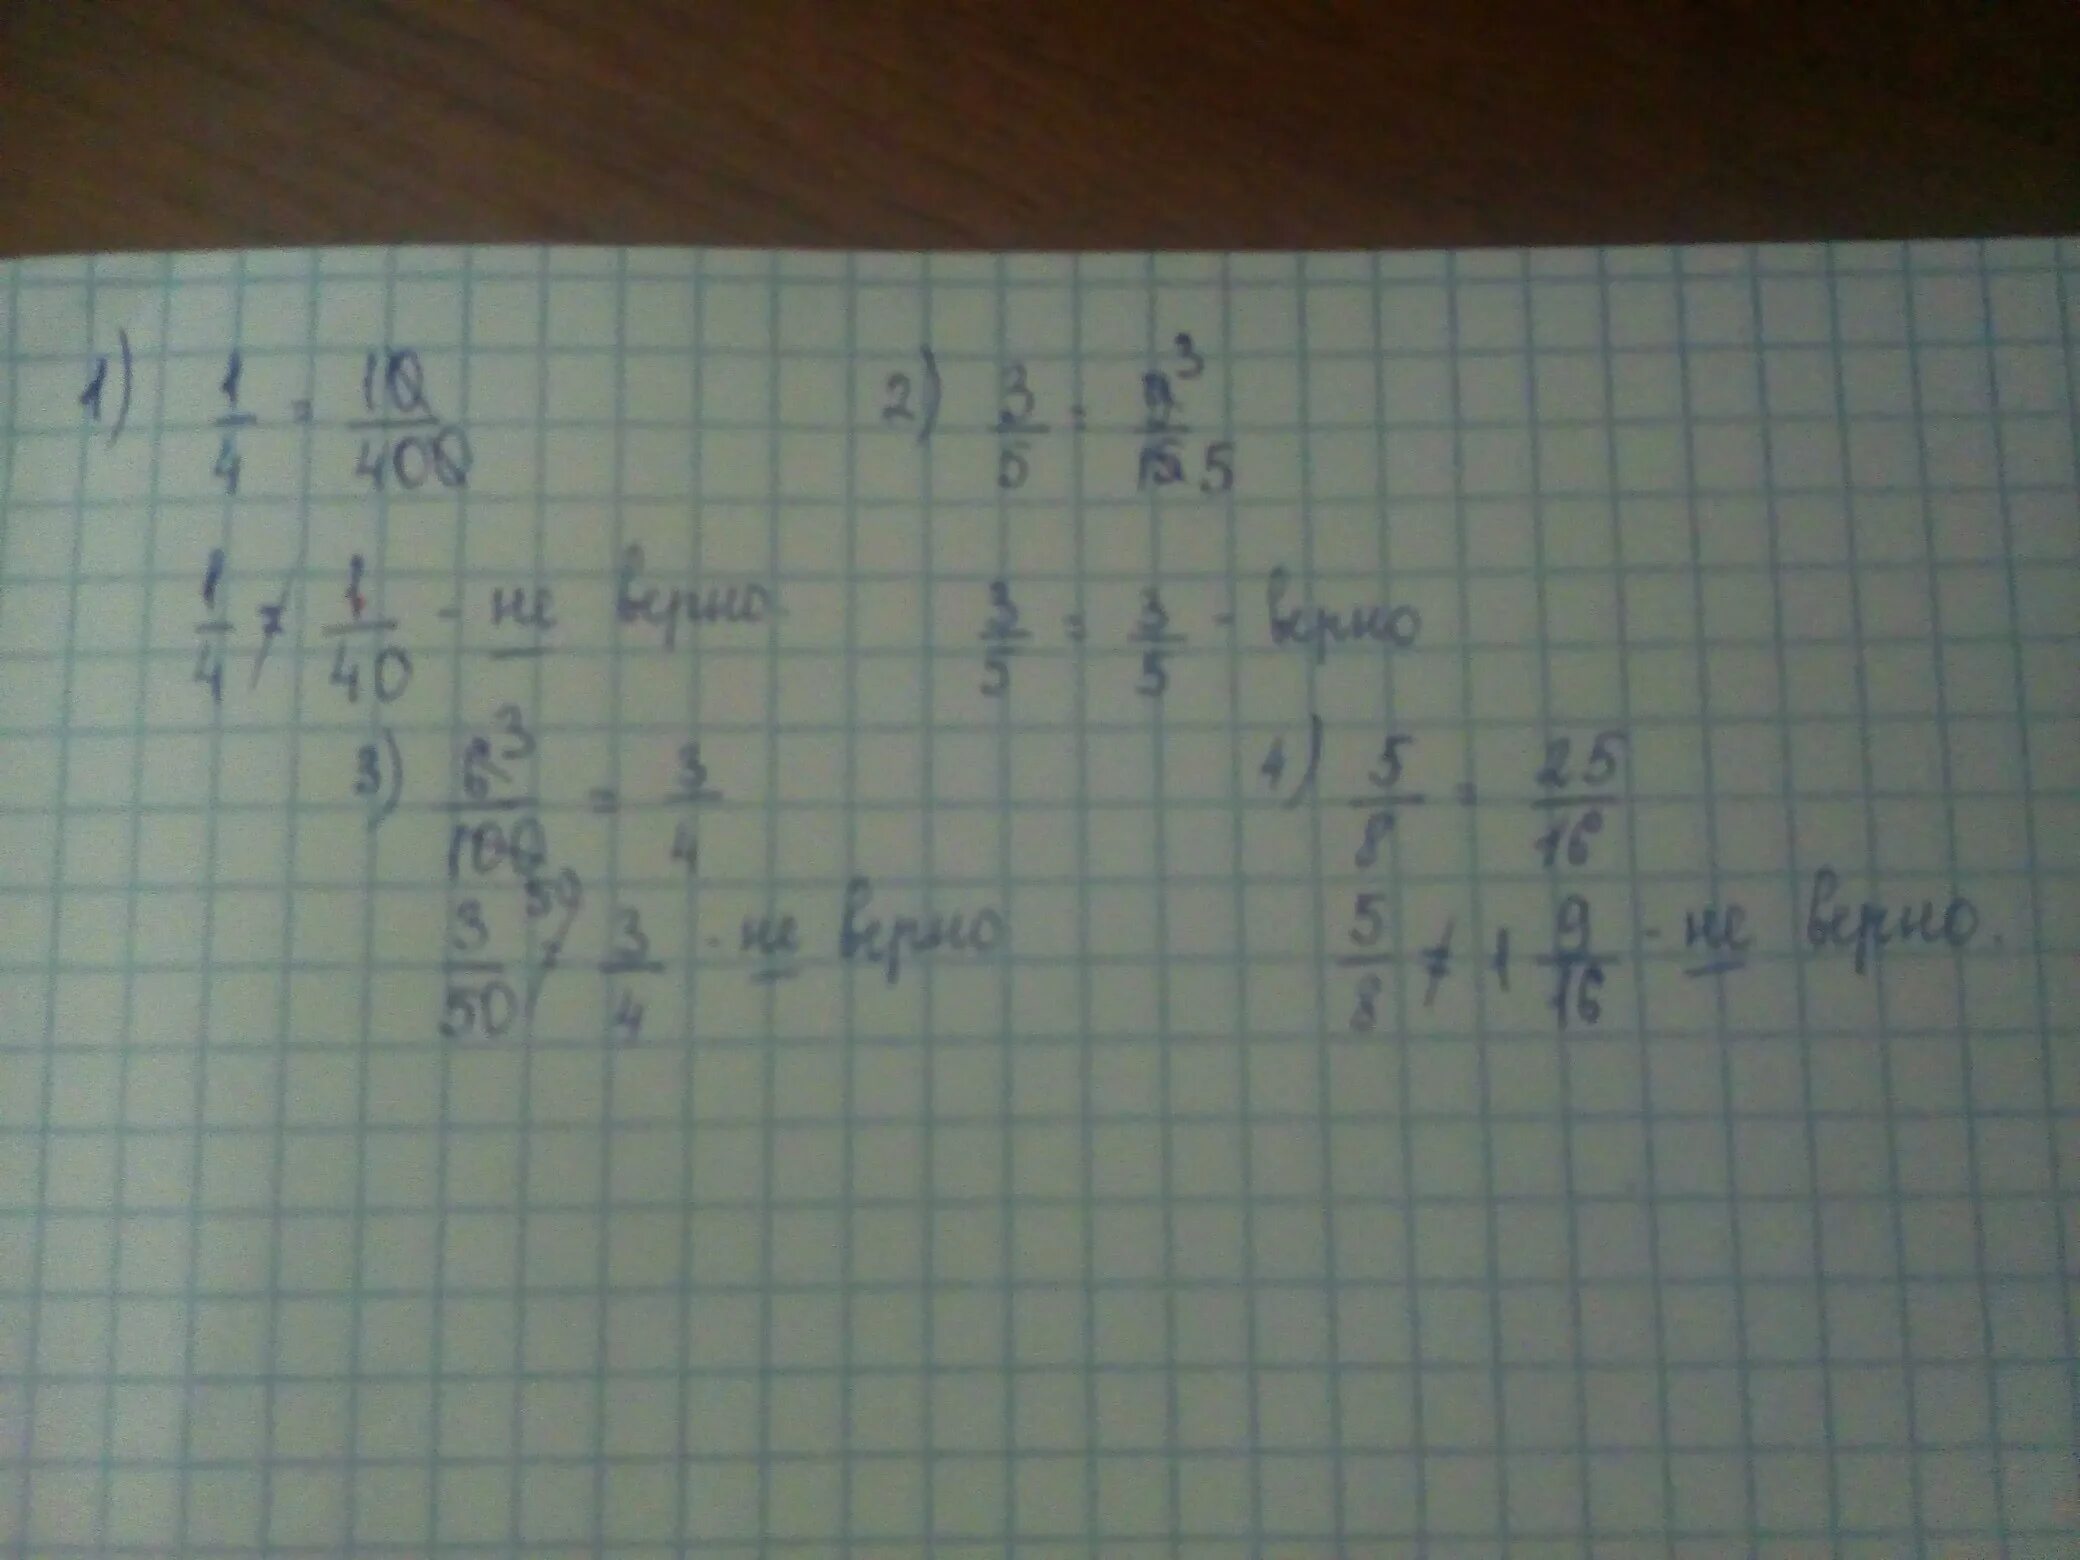 1) 1/4 = 10/400
1/4 ≠ 1/40 - не верно
2) 3/5 = 9³/15 5
3/5 = 3/5 - верно
3) 6³/100 50 = 3/4
3/50 ≠ 3/4 - не верно
4) 5/8 = 25/16
5/8 ≠ 1 9/16 - не верно.